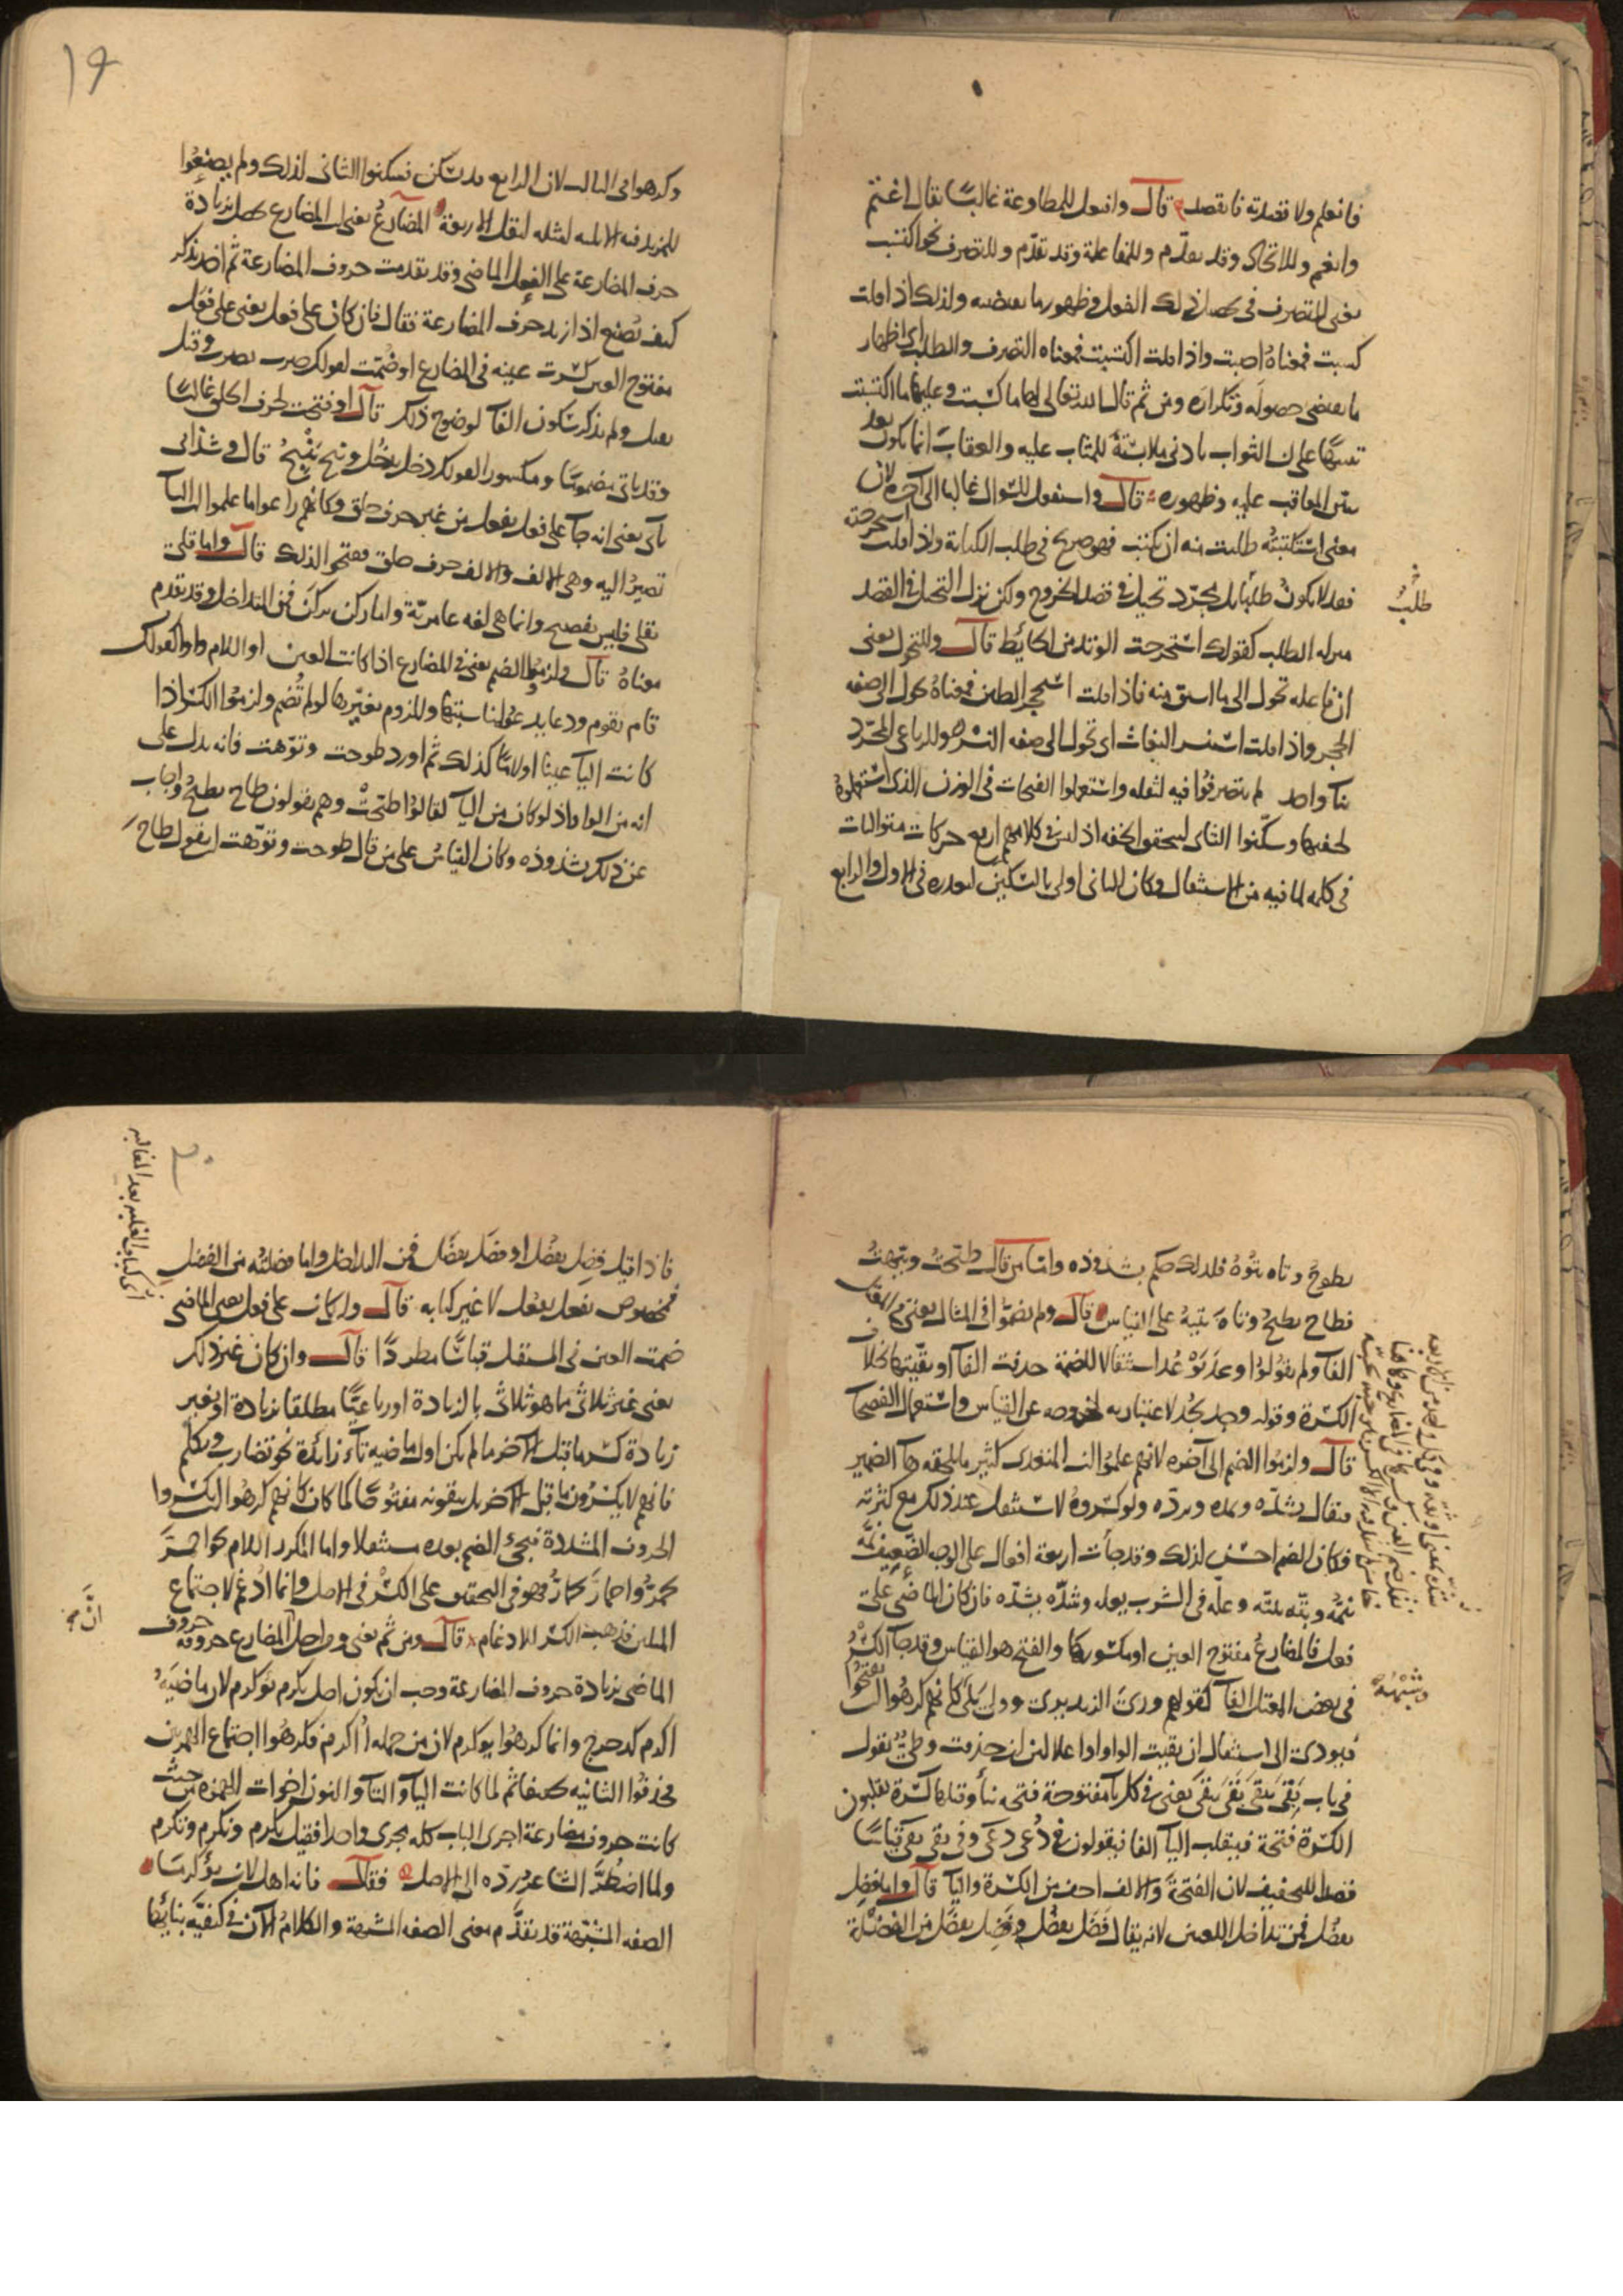 فانعلم ولا قصدته فانقصد قال وافتعل للمطاوعة غالبا يقال اغتم
وانغم وللاتخاذ وقد تقدم وللمفاعلة وقد تقدم وللتصرف نحو اكتسب
يعني للتصرف في تحصيل ذلك الفعل وظهور ما يقتضيه ولذلك اذا قلت
كسبت فمعناه اصبت واذا قلت اكتسبت فمعناه التصرف والطلب اي اظهار
ما يقتضي حصوله وتكراره ومن ثم قال الله تعالى لها ما كسبت وعليها ما اكتسبت
تنبيها على ان الثواب بادنى ملابسة للمثاب عليه والعقاب انما يكون بعد
المعاقب عليه وظهوره قال واستفعل للسؤال غالبا الى آخره لان
معنى استكتبته طلبت منه ان يكتب فهو صريح في طلب الكتابة واذا قلت استخرجته
فقد لا يكون طلبا بل مجرد تحيل في قصد الخروج ولكن نزل التحيل في القصد
طلب
منزلة الطلب كقولك استخرجت الوتد من الحائط قال وللتحول يعني
ان فاعله تحول الى ما اشتق منه فاذا قلت استحجر الطين فمعناه تحول الى صفة
الحجر واذا قلت استنسر البغاث اي تحول الى صفة النسر وللرباعي المجرد
بناء واحد لم يتصرفوا فيه لثقله واستعملوا الفتحات في الوزن الذي استعملوه
لخفتها وسكنوا الثاني لتحقق الخفة اذ ليس في كلامهم اربع حركات متواليات
في كلمة لما فيه من الاستثقال وكان الثاني اولى بالتسكين لتعذره في الاول والرابع
١٩
وكرهوا في الثالث لان الرابع قد يسكن فسكنوا الثاني لذلك ولم يصنعوا
للمزيد فيه لثقل الاربعة المضارع يعني ان المضارع يحصل بزيادة
حرف المضارعة على الفعل الماضي وقد تقدمت حروف المضارعة ثم اخذ يذكر
كيف يصنع اذا زيد حرف المضارعة فقال فان كان على فعل يعني على فعل
مفتوح العين كسرت عينه في المضارع او ضمت لقولك ضرب يضرب وقتل
يقتل ولم يذكر سكون الفآ لوضوح ذلك قال او فتحت لحرف الحلق غالبا
وقد ياتي مضموما ومكسورا لقولك دخل يدخل ونتح ينتح قال وشذ ابى
يأبى يعني انه جآ على فعل يفعل من غير حرف حلق وكانهم راعوا ما علموا ان اليآ
تصير اليه وهي الالف والالف حرف حلق ففتحوا لذلك قال واما قلى
يقلى فليس بفصيح وانما هي لغه عامرية واما ركن يركن فمن التداخل وقد تقدم
معناه قال ولزموا الضم يعني في المضارع اذا كانت العين او اللام واوا كقولك
قام يقوم ودعا يدعو لمناسبتها وللزوم تغيرها لو لم تضم ولزموا الكسر اذا
كانت اليآ عينا او لاما كذلك ثم اورد طوحت وتوهت فانه يدل على
انه من الواو اذ لو كان من اليآ لقالوا طيحت وهم يقولون طاح يطيح واجاب
عن ذلك بشذوذه وكان القياس على من قال طوحت وتوهت ان يقول طاح
يطوح وتاه يتوه فلذلك حكم بشذوذه واما من قال طيحت وتيهت
فطاح يطيح وتاه يتيه على القياس قال ولم يضموا في المثال يعني المعتل
الفآ ولم يقولوا وعد يوعد استثقالا للضمة حذفت الفآ او بقيتها بخلاف
الكسرة وقوله وجد يجد لا اعتبار به لخروجه عن القياس واستعمال الفصحآ
قال ولزموا الضم الى آخره لانهم علموا ان المتعدي كثير ما يلحقه هآ الضمير
فيقال يشده ويمده ويرده ولو كسروه لاستثقل عند ذلك مع كثرته
فكان الضم احسن لذلك وقد جآت اربعة افعال على الوجه الضعيف نمه
ينمه وبته يبته وعله في الشرب يعله وشده يشده فان كان الماضي على
فعل فالمضارع مفتوح العين او مكسورها والفتح هو القياس وقد جآ الكسر
وشبهه
في بعض المعتل الفآ كقولهم وري الزند يري وولي يلي كانهم كرهوا ان يفتحوا
فيؤدي الى استثقال ان بقيت الواو او اعلالين ان حذفت وطيئ تقول
في باب بقي يبقى بقى يبقى يعني في كل يآ مفتوحة فتحة بنآ وقبلها كسرة يقلبون
الكسرة فتحة فينقلب اليآ الفا فيقولون في دعي دعى وفي بقي بقى قياسا
قصدا للتخفيف لان الفتحة والالف اخف من الكسرة واليآ قال واما فضل
يفضل فمن تداخل اللغتين لانه يقال فضل يفضل وفضل يفضل من الفضلة
٢٠
اي كباب الغلبه بعد المغالبه
فاذا قيل فضل يفضل او فضل يفضل فمن التداخل واما فضلته من الفضل
فمخصوص بفعل يفعل لا غير كبابه قال وان كان على فعل يعني الماضي
ضمت العين في المستقبل قياسا مطردا قال وان كان غير ذلك
يعني غير ثلاثي ما هو ثلاثي بالزيادة او رباعيا مطلقا بزيادة او بغير
زيادة كسر ما قبل الاخر ما لم يكن اول ماضيه تآء زائدة نحو تضارب وتكلم
فانهم لا يكسرون ما قبل الاخر بل يبقونه مفتوحا لما كان كانهم كرهوا ان يكسروا
الحروف المشددة فيجئ الضم بعده مستثقلا واما المكرر اللام نحو احمر
يحمر واحمار يحمار فهو في التحقيق على الكسر في الاصل وانما ادغم لاجتماع
المثلين فذهب الكسر للادغام قال ومن ثم يعني ومن اجل ان المضارع حروفه حروف
الماضي بزيادة حروف المضارعة وجب ان يكون اصل يكرم يؤكرم لان ماضيه
اكرم كدحرج وانما كرهوا يوكرم لان من جمله أُاكرم فكرهوا اجتماع الهمزتين
فحذفوا الثانيه تخفيفا ثم لما كانت اليآ والتآ والنون اخوات الهمزه من حيث
كانت حروف مضارعة اجرى الباب كله مجرى واحدا فقيل يكرم ونكرم وتكرم
ولما اضطر الشاعر رده الى الاصل فقال فانه اهل لان يؤكرما
الصفه المشبهة قد تقدم معنى الصفه المشبهة والكلام الآن في كيفية بنائها